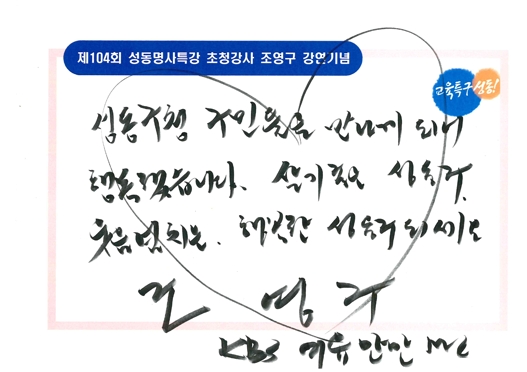 제104회 성동명사특강 초청강사 조영구 강연기념
교육특구 성동!
성동구청 구민들을 만나게 되어
행복했습니다. 살기좋은 성동구,
웃음넘치는, 행복한 성동구되세요
조 영 구
KBS 여유만만 MC